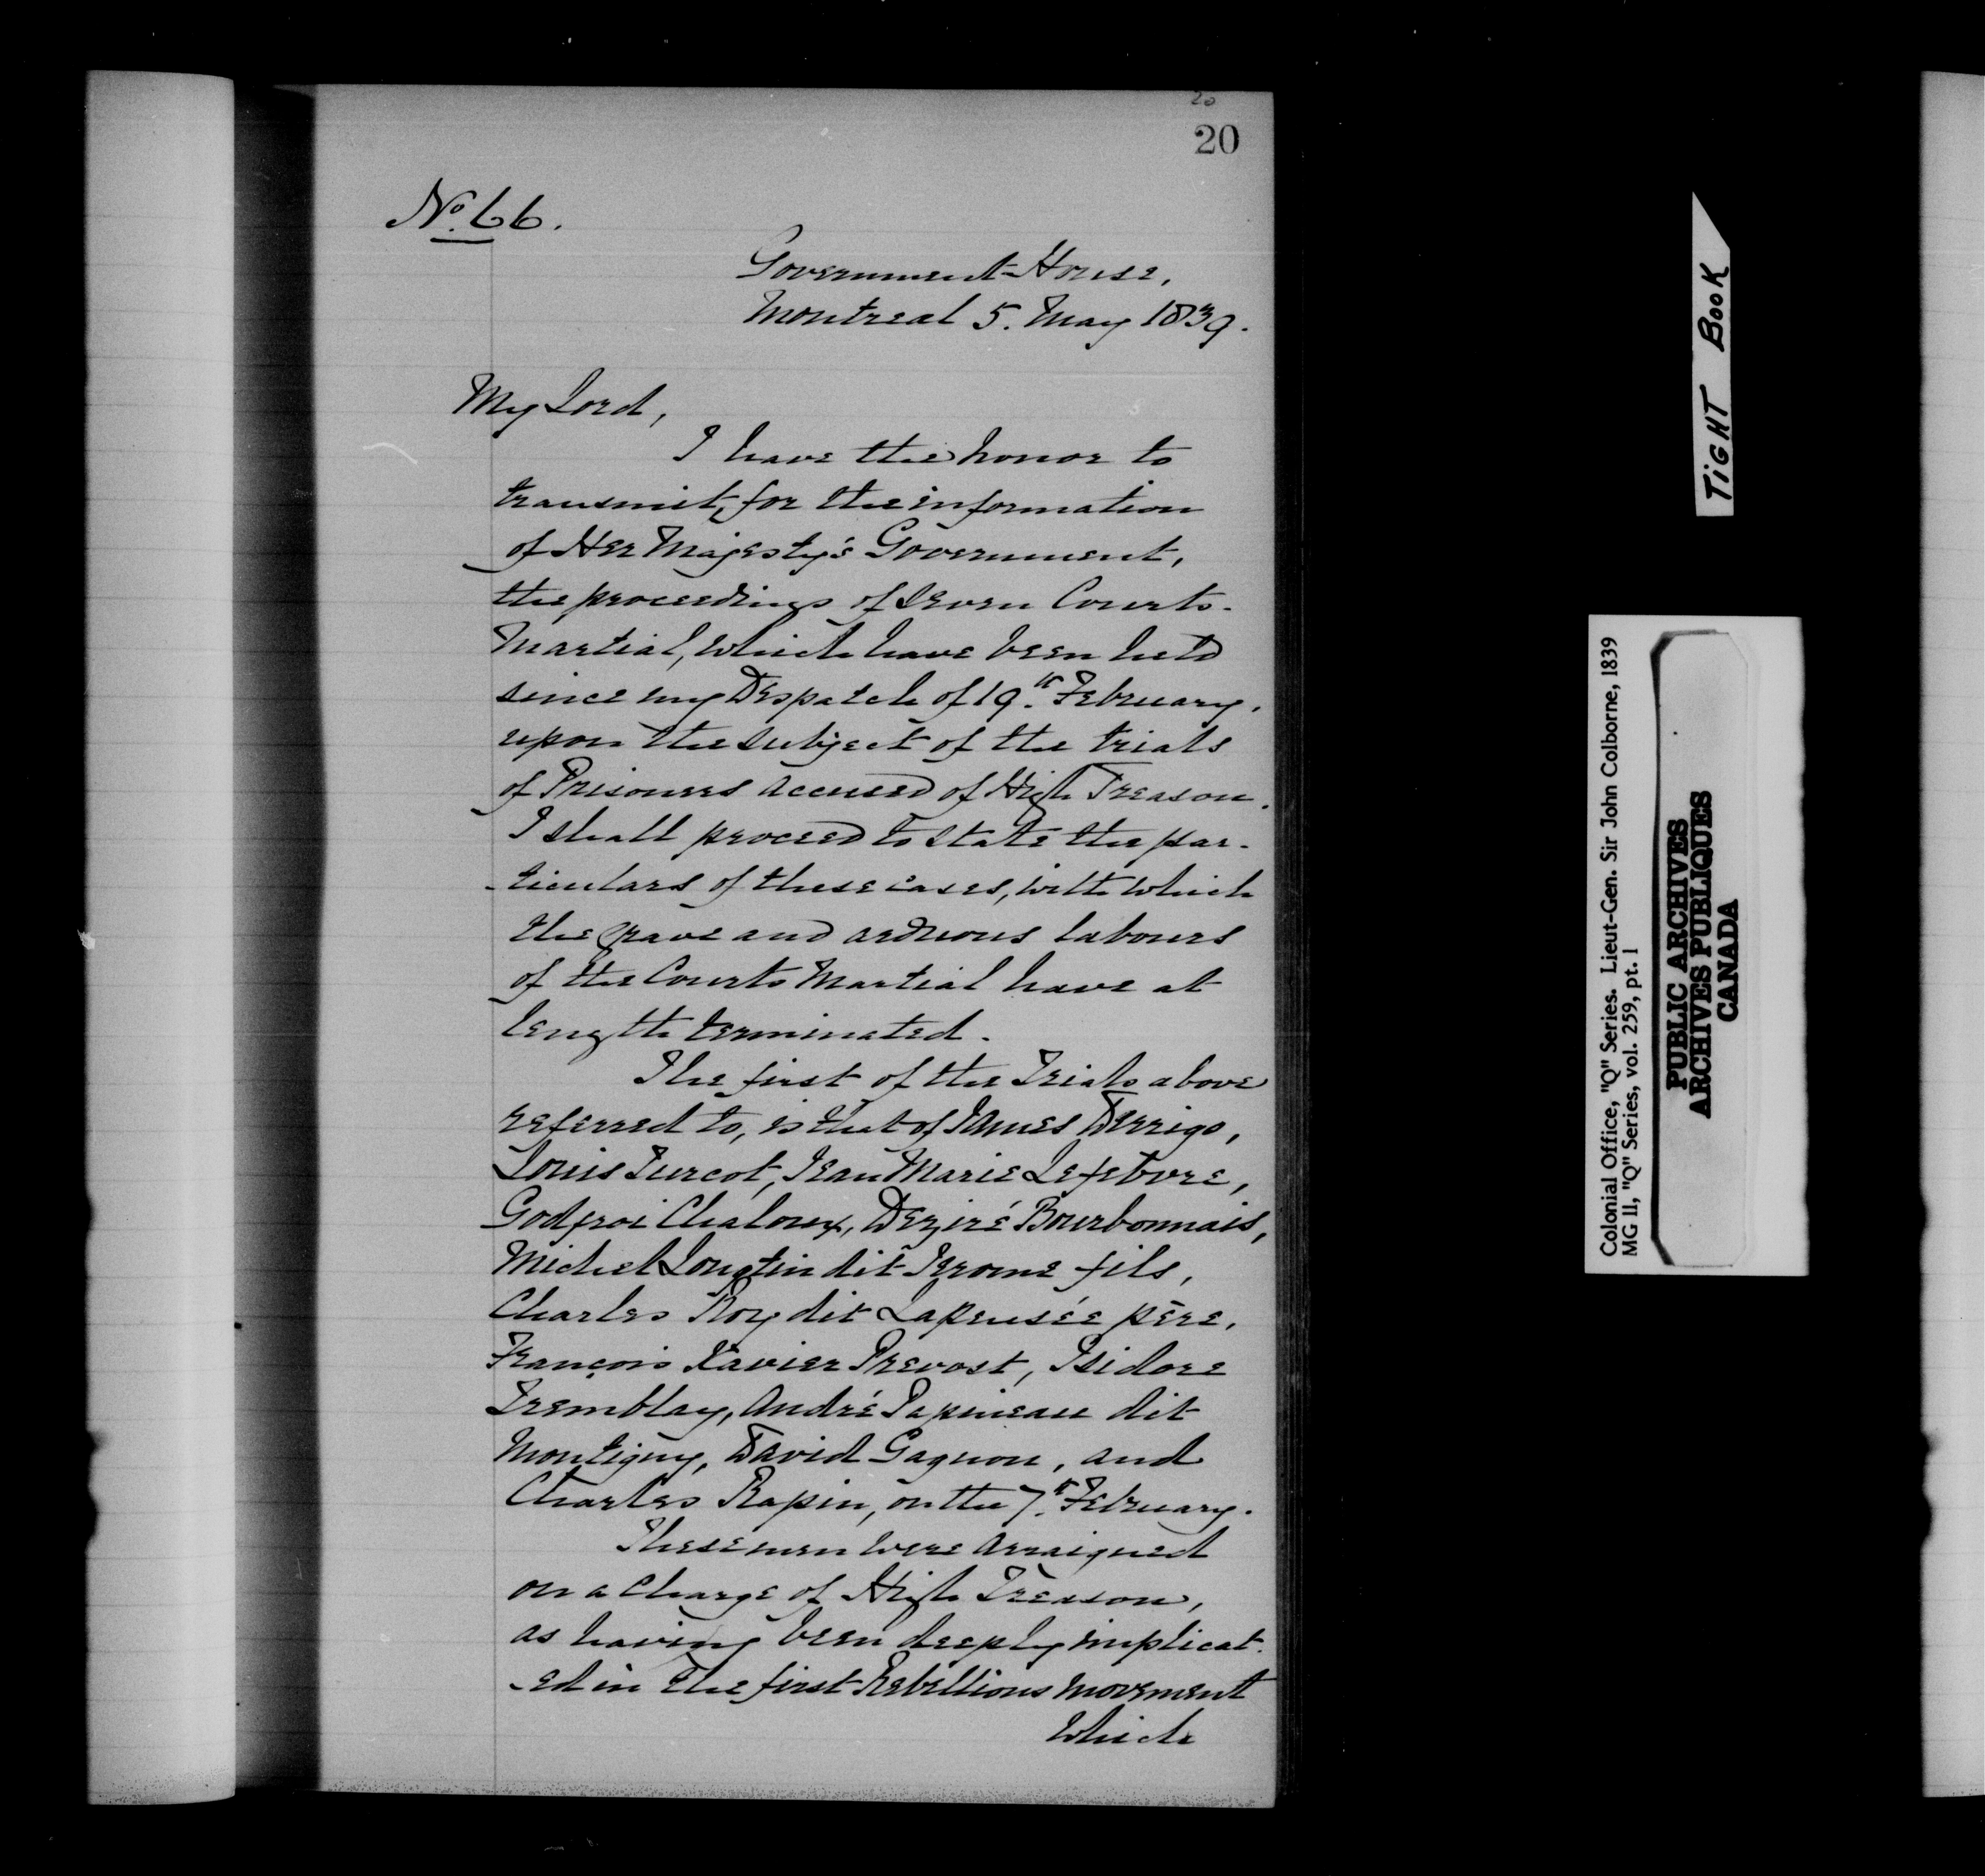 20
20
No. 66.
Government House,
Montreal 5. May 1839.
My Lord,
I have the honor to
transmit, for the information
of Her Majesty's Government,
the proceedings of seven Courts-
Martial, which have been held
since my Despatch of 19.th February,
upon the subject of the trials
of Prisoners accused of High Treason.
I shall proceed to state the par-
-ticulars of these cases, with which
the grave and arduous labours
of the Courts Martial have at
length terminated.
The first of the Trials above
referred to, is that of James Perrigo,
Louis Turcot, Jean Marie Lefebvre,
Godfroi Chaloux, Deziré Bourbonnais,
Michel Longtin dit Jerome fils,
Charles Roy dit Lapensée père,
François Xavier Prevost, Isidore
Tremblay, André Papineau dit
Montigny, David Gagnon, and
Charles Rapin, on the 7.th February.
These men were arraigned
on a charge of High Treason,
as having been deeply implicat-
-ed in the first Rebellious movement
which
TIGHT BOOK
Colonial Office, "Q" Series. Lieut-Gen. Sir John Colborne, 1839
MG 11, "Q" Series, vol. 259, pt. 1
PUBLIC ARCHIVES
ARCHIVES PUBLIQUES
CANADA